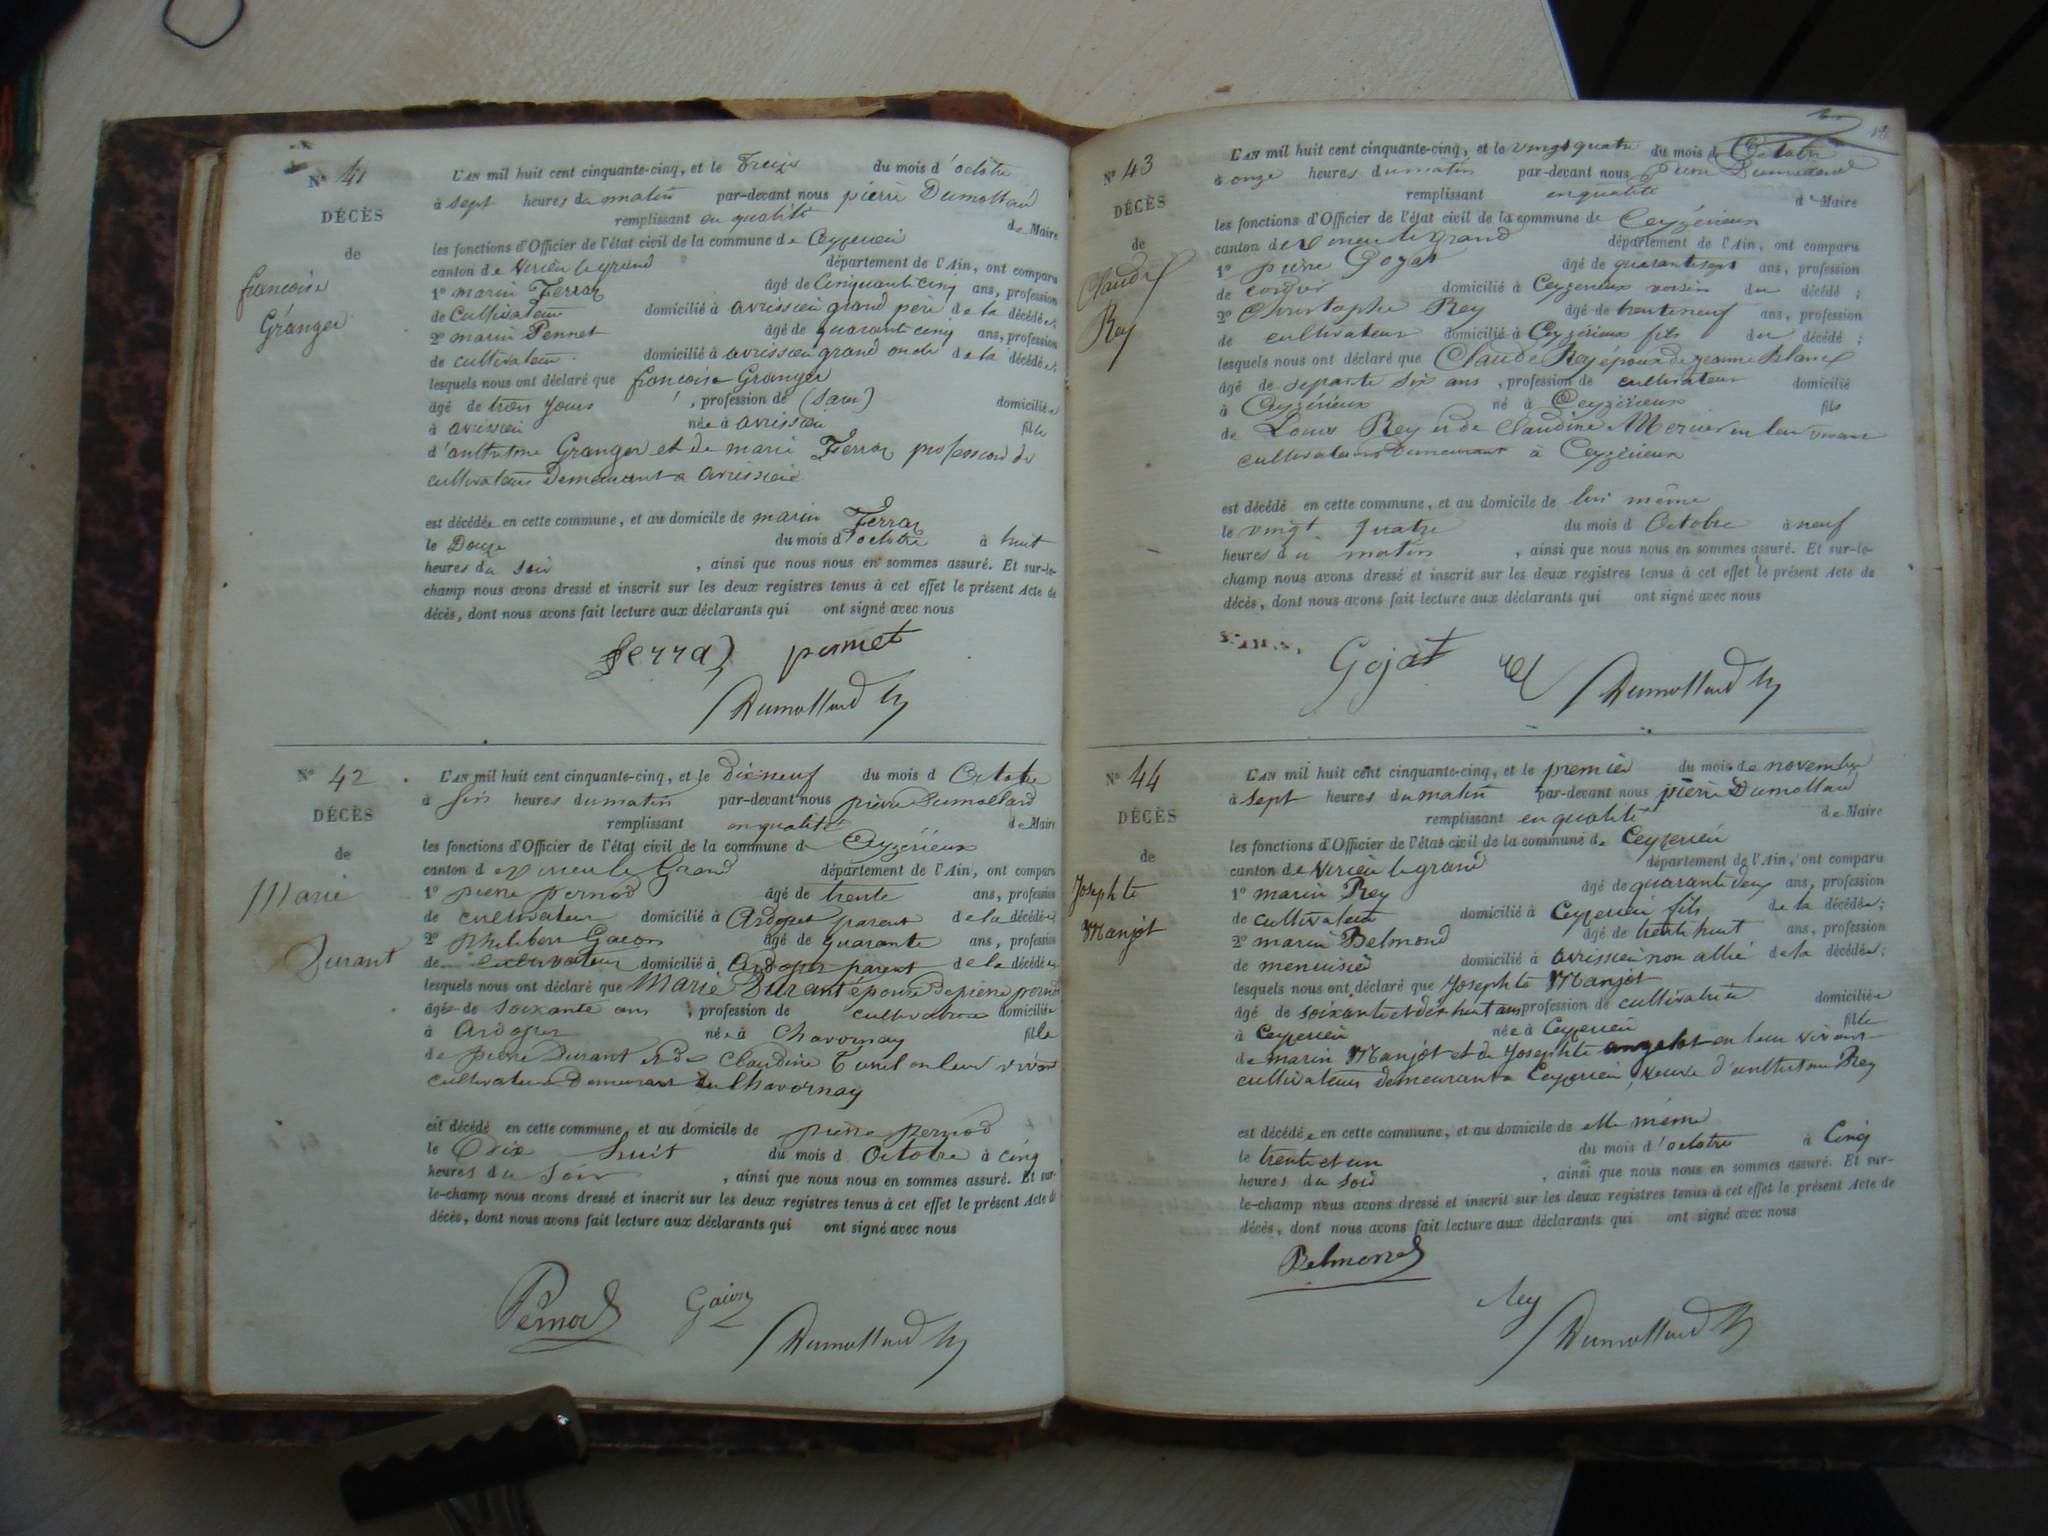 No 41
DÉCÈS
de
francoise
Granger
L'AN mil huit cent cinquante-cinq, et le Treize du mois d'octobre
à sept heures du matin par-devant nous pierre Dumollard
remplissant en qualité de Maire
les fonctions d'Officier de l'état civil de la commune de Ceyzerieu
canton de Virieu le grand département de l'Ain, ont comparu
1o marin Ferraz âgé de Cinquante cinq ans, profession
de Cultivateur domicilié à avrissieu grand pere de la décédée;
2o marin Pennet âgé de quarante cinq ans, profession
de cultivateur domicilié à avrissieu grand oncle de la décédée;
lesquels nous ont déclaré que francoise Granger
âgé de trois jours, profession de (sans) domiciliée
à avrissieu née à avrissieu fille
d'anthelme Granger et de marie Ferraz profession de
cultivateurs Demeurant a avrissieu
est décédée en cette commune, et au domicile de marin Ferraz
le Douze du mois d'octobre à huit
heures du soir, ainsi que nous nous en sommes assuré. Et sur-le-
champ nous avons dressé et inscrit sur les deux registres tenus à cet effet le présent Acte de
décès, dont nous avons fait lecture aux déclarants qui ont signé avec nous
ferraz pernet
Dumollard
No 42
DÉCÈS
de
Marie
Durant
L'AN mil huit cent cinquante-cinq, et le dix neuf du mois d Octobre
à six heures du matin par-devant nous pierre Dumollard
remplissant en qualité de Maire
les fonctions d'Officier de l'état civil de la commune de Ceyzérieux
canton de Virieu le Grand département de l'Ain, ont comparu
1o pierre pernod âgé de trente ans, profession
de cultivateur domicilié à Ardosset parent de la décédée;
2o philibert Gacon âgé de quarante ans, profession
de cultivateur domicilié à Ardosset parent de la décédée;
lesquels nous ont déclaré que Marie Durant épouse de pierre pernod
âgée de soixante ans, profession de cultivatrice domiciliée
à Ardosset née à Chavornay fille
de pierre Durant et de Claudine en leur vivant
cultivateurs Demeurant à Chavornay
est décédé en cette commune, et au domicile de pierre pernod
le Dix huit du mois d Octobre à cinq
heures du soir, ainsi que nous nous en sommes assuré. Et sur-
le-champ nous avons dressé et inscrit sur les deux registres tenus à cet effet le présent Acte de
décès, dont nous avons fait lecture aux déclarants qui ont signé avec nous
Pernod Gacon
Dumollard
No 43
DÉCÈS
de
Claude
Rey
L'AN mil huit cent cinquante-cinq, et le vingt quatre du mois d Octobre
à onze heures du matin par-devant nous Pierre Dumollard
remplissant en qualité de Maire
les fonctions d'Officier de l'état civil de la commune de Ceyzérieux
canton de Virieu le grand département de l'Ain, ont comparu
1o pierre Gojat âgé de quarante sept ans, profession
de cordier domicilié à Ceyzerieux voisin du décédé;
2o Christophe Rey âgé de trente neuf ans, profession
de cultivateur domicilié à Ceyzérieux fils du décédé;
lesquels nous ont déclaré que Claude Rey époux de jeanne Blanc
âgé de septante six ans, profession de cultivateur domicilié
à Ceyzérieux né à Ceyzérieux fils
de Louis Rey et de Claudine Mercier en leur vivant
cultivateurs Demeurant à Ceyzérieux
est décédé en cette commune, et au domicile de lui même
le vingt quatre du mois d Octobre à neuf
heures du matin, ainsi que nous nous en sommes assuré. Et sur-le-
champ nous avons dressé et inscrit sur les deux registres tenus à cet effet le présent Acte de
décès, dont nous avons fait lecture aux déclarants qui ont signé avec nous
Gojat Dumollard
No 44
DÉCÈS
de
Josephte
Manjot
L'AN mil huit cent cinquante-cinq, et le premier du mois de novembre
à sept heures du matin par-devant nous pierre Dumollard
remplissant en qualité de Maire
les fonctions d'Officier de l'état civil de la commune de Ceyzerieu
canton de Virieu le grand département de l'Ain, ont comparu
1o marin Rey âgé de quarante deux ans, profession
de cultivateur domicilié à Ceyzerieu fils de la décédée;
2o marin Belmond âgé de trente huit ans, profession
de menuisier domicilié à avrissieu non allié de la décédée;
lesquels nous ont déclaré que Josephte Manjot
âgé de soixante et dix huit ans profession de cultivatrice domiciliée
à Ceyzerieu née à Ceyzerieu fille
de marin Manjot et de Josephte angelot en leur vivant
cultivateurs demeurant a Ceyzerieu, veuve d'anthelme Rey
est décédée en cette commune, et au domicile de elle même
le trente et un du mois d'octobre à Cinq
heures du soir, ainsi que nous nous en sommes assuré. Et sur-
le-champ nous avons dressé et inscrit sur les deux registres tenus à cet effet le présent Acte de
décès, dont nous avons fait lecture aux déclarants qui ont signé avec nous
Belmond
Rey
Dumollard